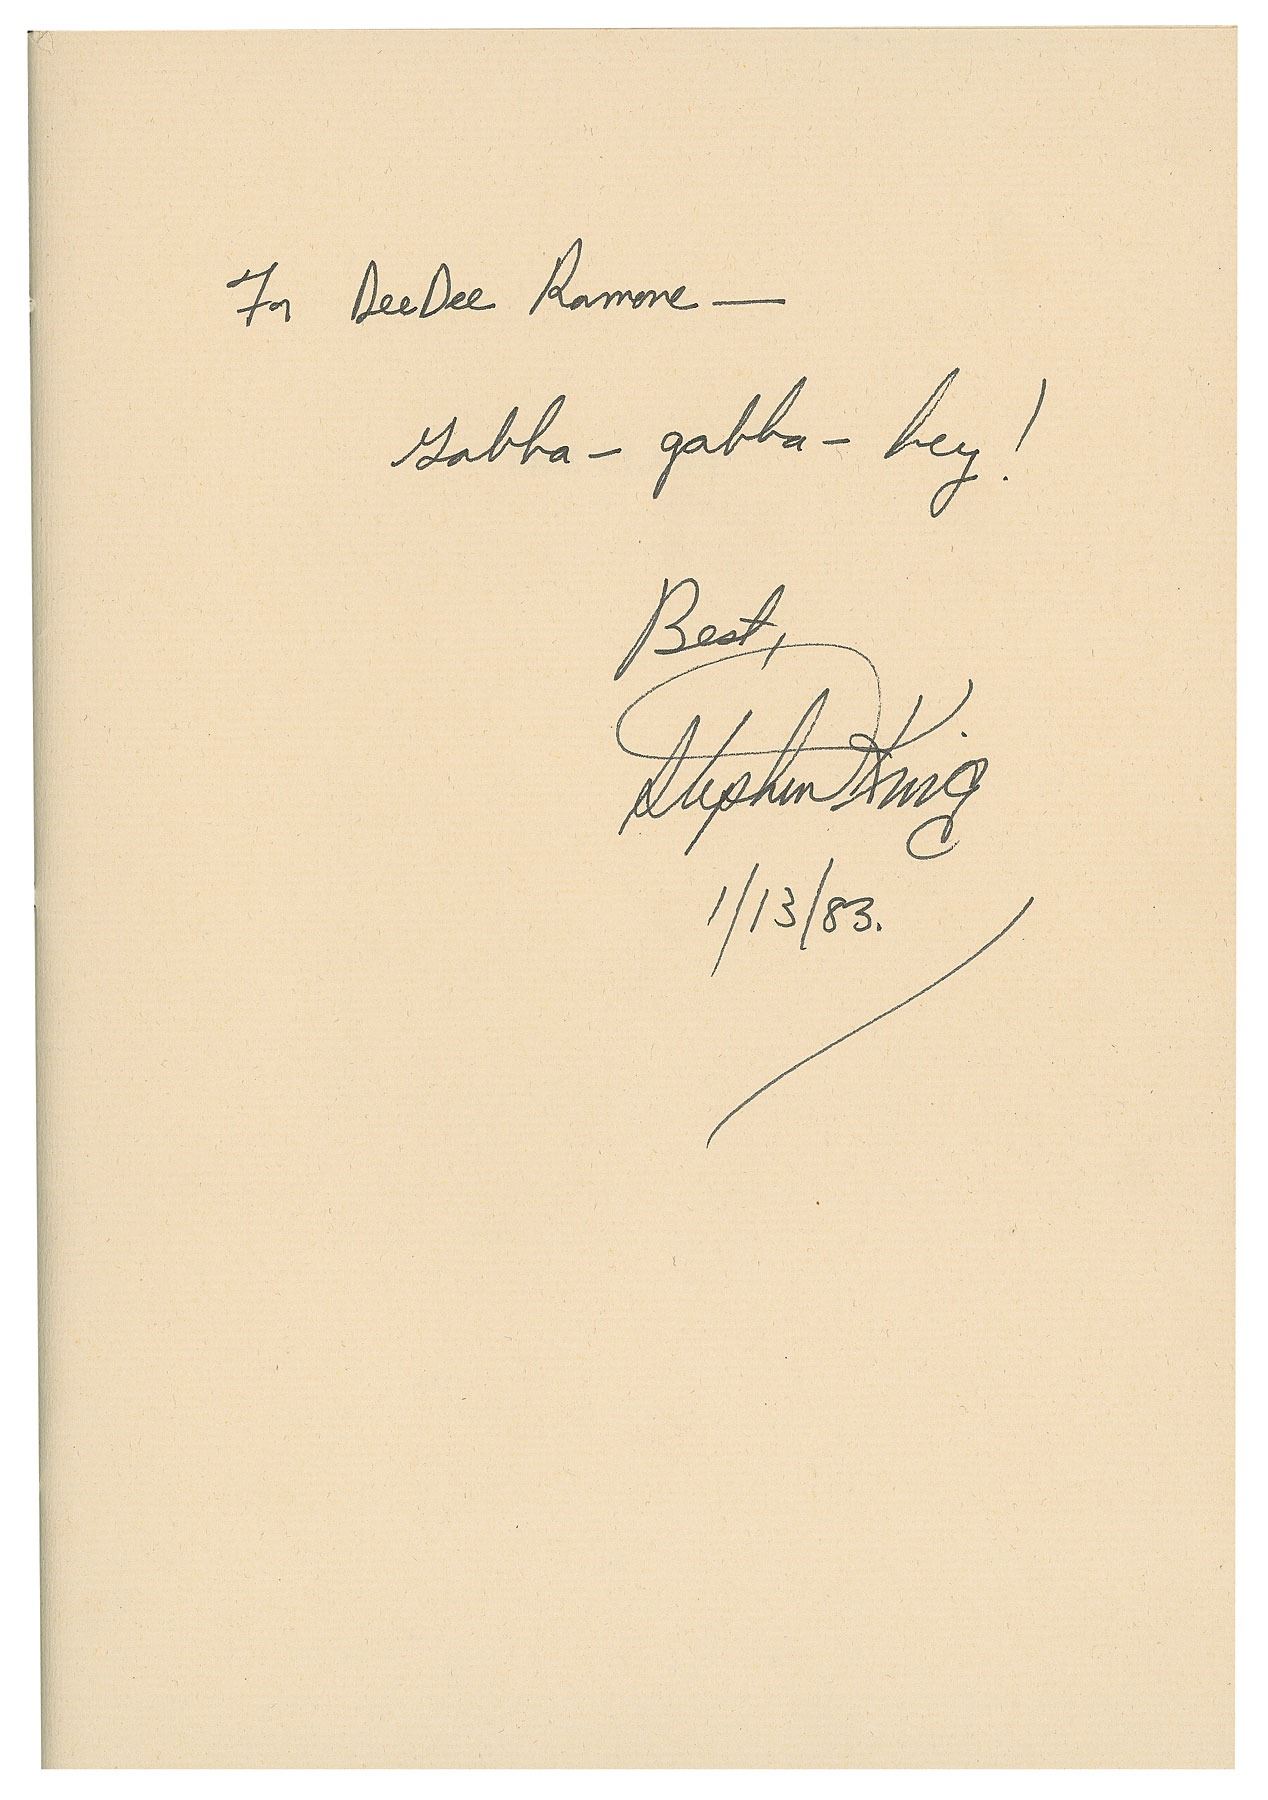 For DeeDee Ramone —
Gabba - gabba - hey!
Best,
Stephen King
1/13/83.